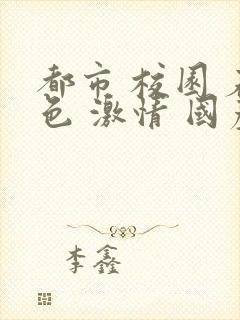 都市 校园 
色 激情 国
李鑫